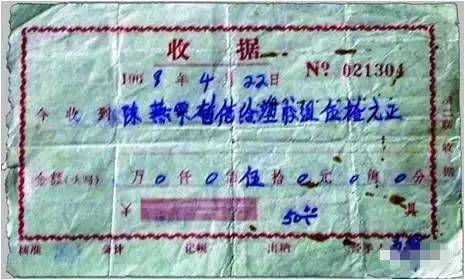 收 据
1968年4月22日 № 021304
今收到 陈燕平暂借给塑胶组伍拾元正
金额(大写) 万0仟0佰伍拾0元0角0分
¥ 50
核准 会计 记帐 出纳
第二联收据